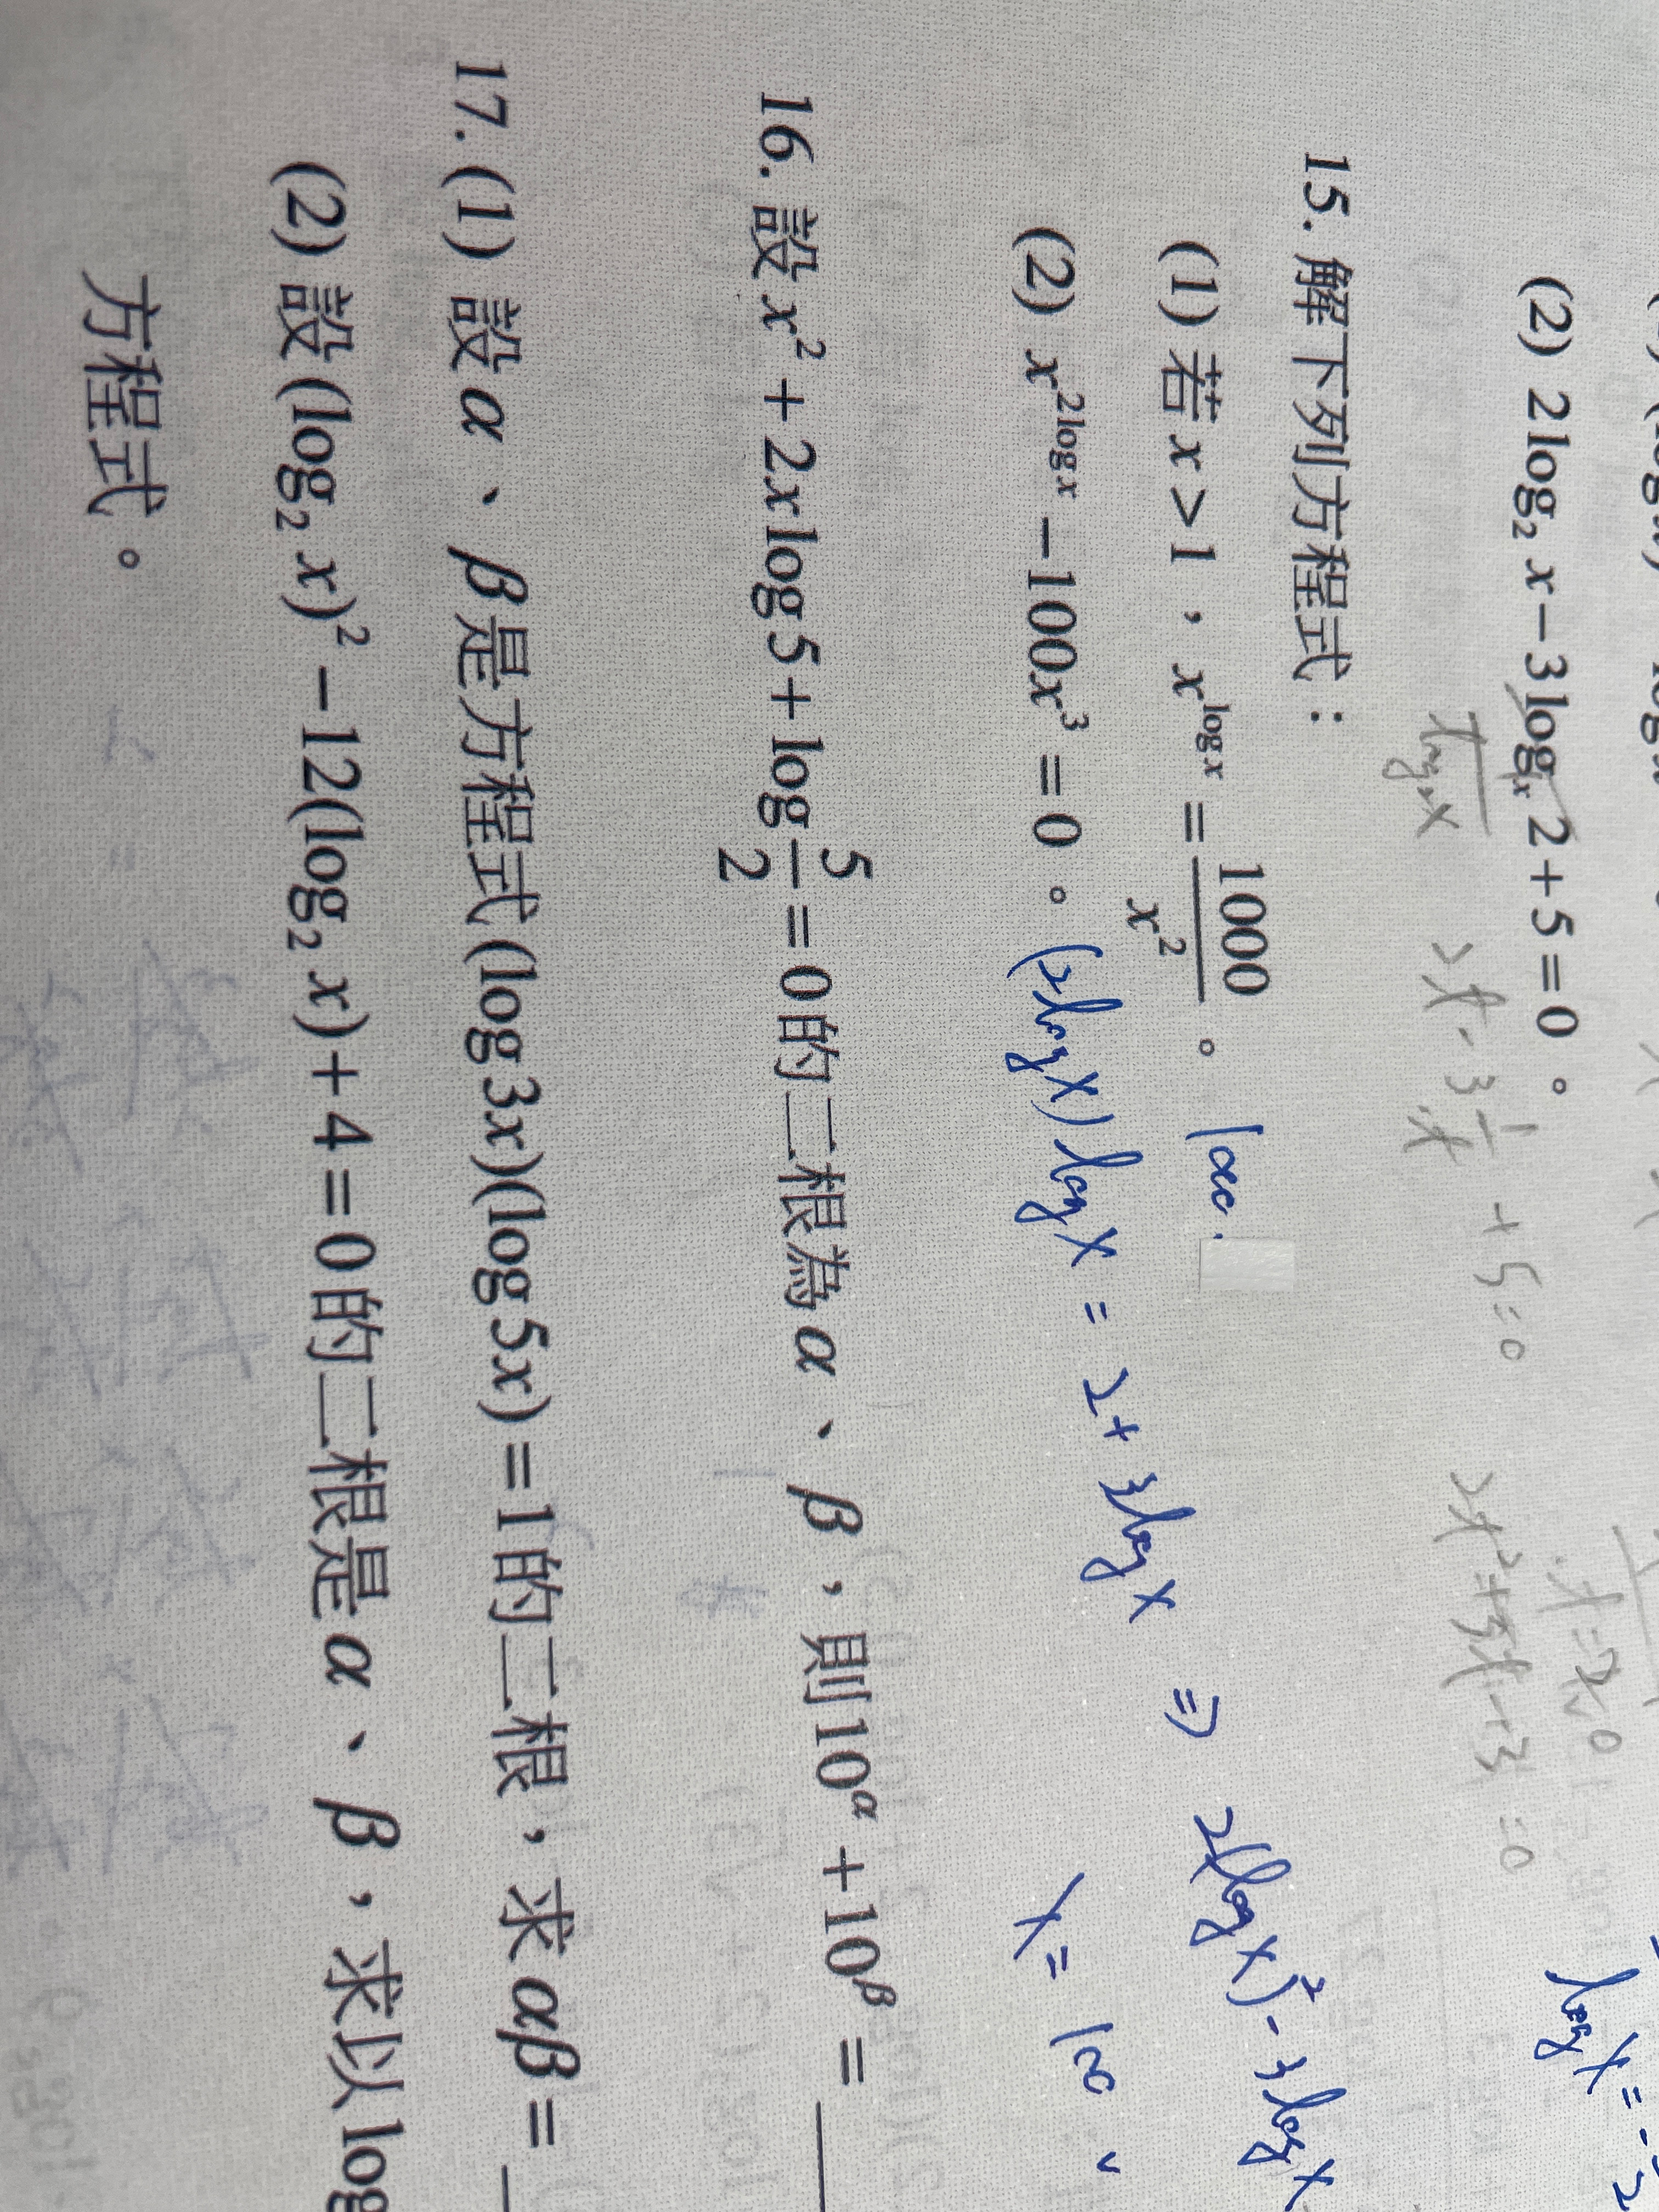 (2) 2log₂ x－3logₓ 2＋5＝0。
log₂x 2t－3 1/t ＋5＝0 2t²＋5t－3＝0
15. 解下列方程式：
(1) 若 x＞1，x^{log x}＝1000/x²。
(2) x^{2log x}－100x³＝0。 (2logx)logx = 2+3logx ⇒ 2(logx)²-3logx
x= 100
16. 設 x²＋2x log 5＋log 5/2＝0 的二根為 α、β，則 10^α＋10^β＝
17. (1) 設 α、β 是方程式 (log 3x)(log 5x)＝1 的二根，求 αβ＝
(2) 設 (log₂ x)²－12(log₂ x)＋4＝0 的二根是 α、β，求以 log
方程式。